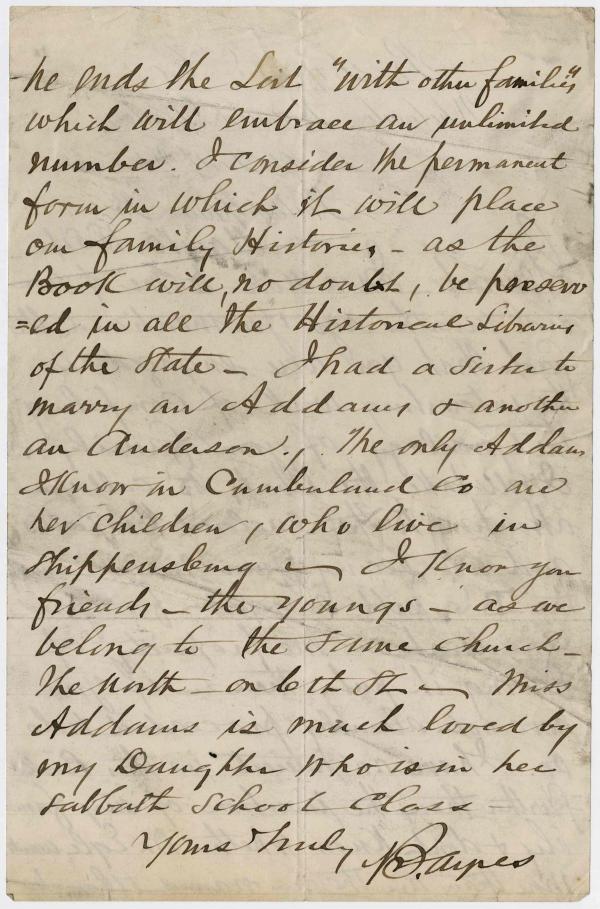 he ends the List "with other families"
which will embrace an unlimited
number. I consider the permanent
form in which it will place
our family Histories - as the
Book will, no doubt, be preserv
=ed in all the Historical Libraries
of the State - I had a sister to
marry an Addams & another
an Anderson., The only Addams
I Know in Cumberland Co are
her children, who live in
Shippensburg - I Know you
friends - the Youngs - as we
belong to the same church -
The North - on 6th St - Miss
Addams is much loved by
my Daughter who is in her
Sabbath School Class -
Yours truly